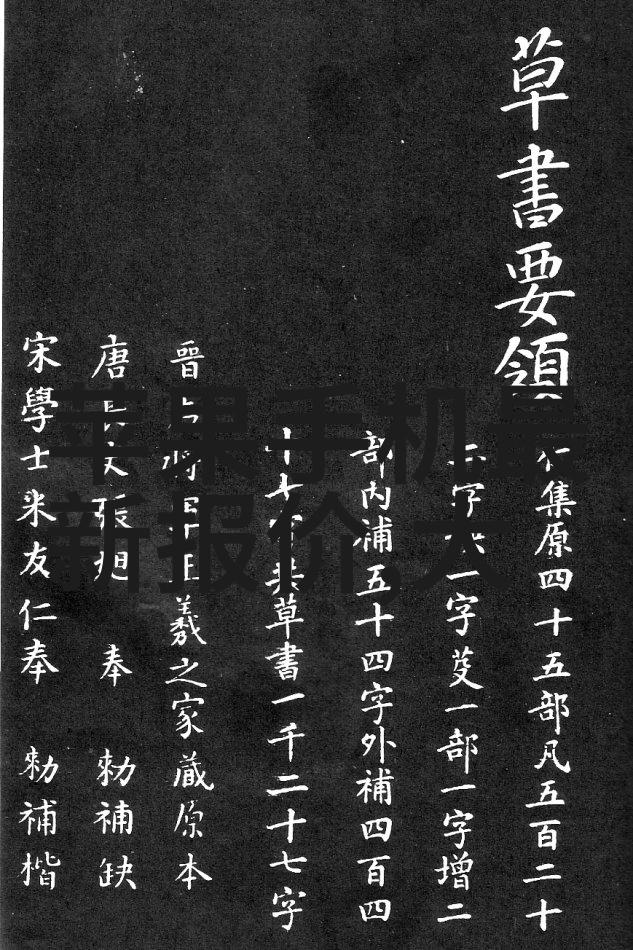 草書要領
集原四十五部凡五百二十
字 一字芟一部一字增二
部内補五十四字外補四百四
十七字共草書一千二十七字
晉右將軍王羲之家蔵原本
唐長史張旭 奉 勅補缺
宋學士米友仁奉 勅補楷
苹果手机最
新报价,大